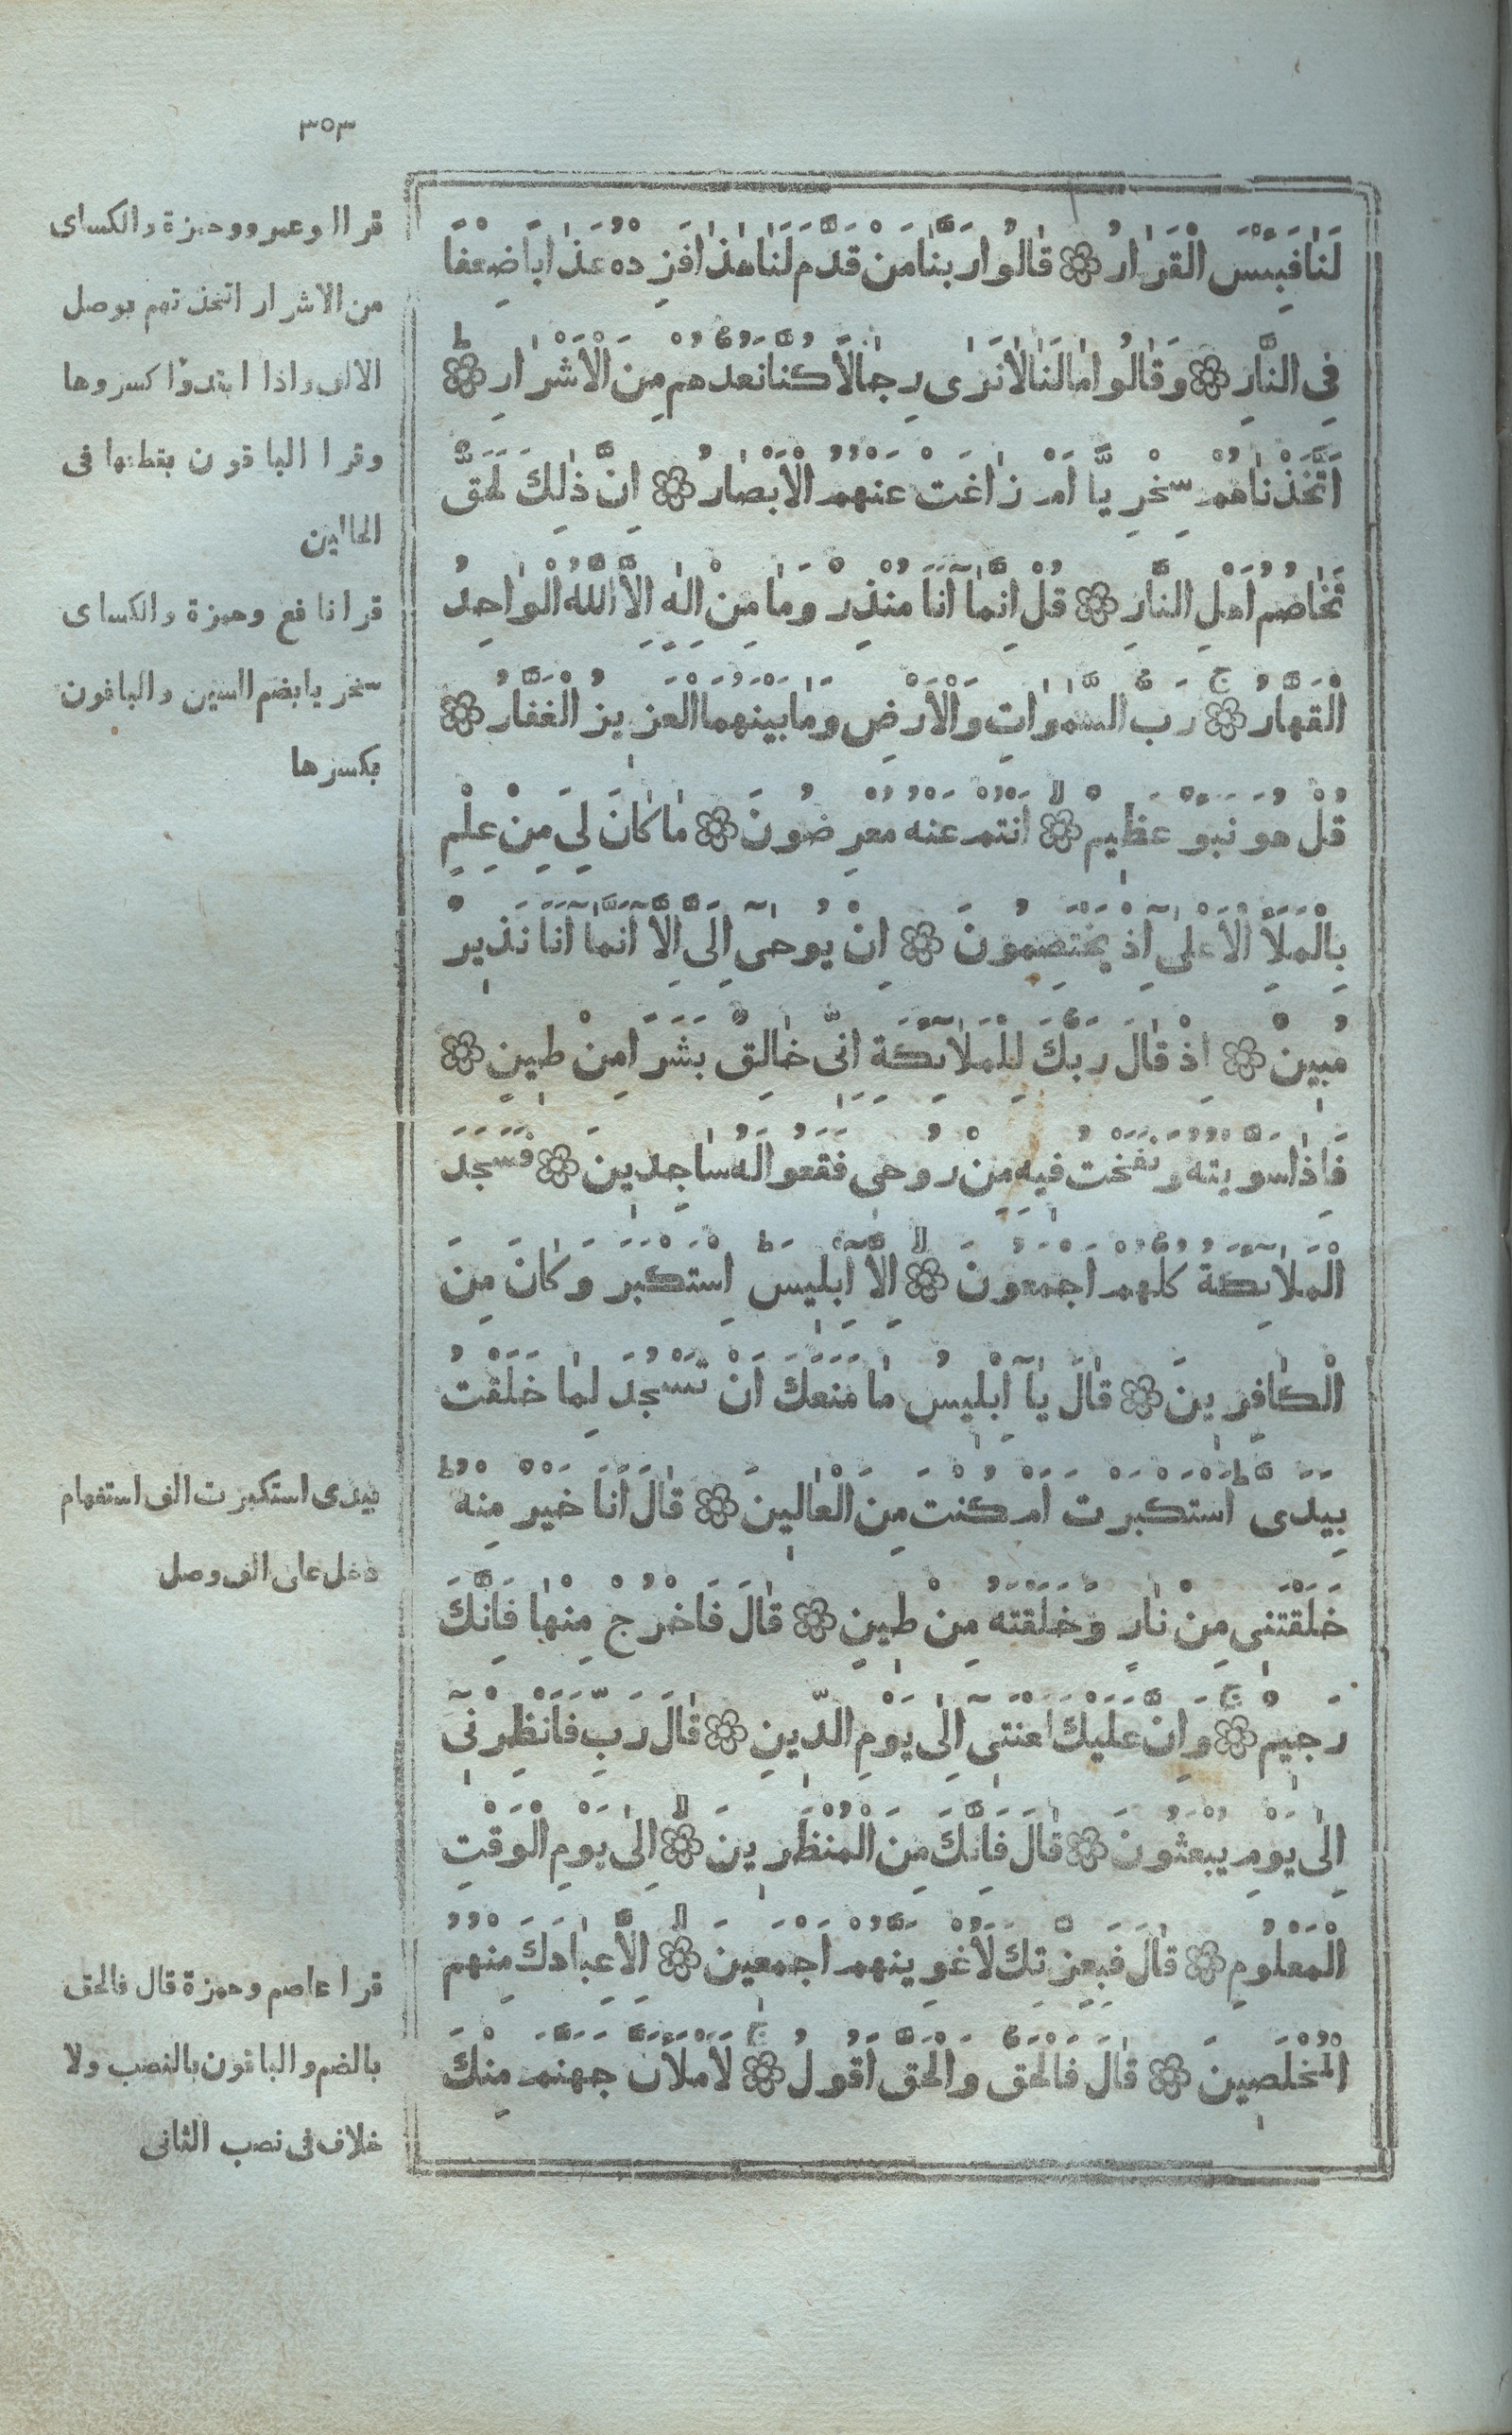 ٣٥٣
لَنَا فَبِئْسَ الْقَرَارُ ۞ قَالُوا رَبَّنَا مَنْ قَدَّمَ لَنَا هٰذَا فَزِدْهُ عَذَابًا ضِعْفًا
فِي النَّارِ ۞ وَقَالُوا مَا لَنَا لَا نَرٰى رِجَالًا كُنَّا نَعُدُّهُمْ مِنَ الْاَشْرَارِ ۞ ط
اَتَّخَذْنَاهُمْ سِخْرِيًّا اَمْ زَاغَتْ عَنْهُمُ الْاَبْصَارُ ۞ اِنَّ ذٰلِكَ لَحَقٌّ
تَخَاصُمُ اَهْلِ النَّارِ ۞ قُلْ اِنَّمَآ اَنَا مُنْذِرٌ وَمَا مِنْ اِلٰهٍ اِلَّا اللّٰهُ الْوَاحِدُ
الْقَهَّارُ ۞ ج رَبُّ السَّمٰوَاتِ وَالْاَرْضِ وَمَا بَيْنَهُمَا الْعَزِيزُ الْغَفَّارُ ۞
قُلْ هُوَ نَبَؤٌ عَظِيمٌ ۞ لا اَنْتُمْ عَنْهُ مُعْرِضُونَ ۞ مَا كَانَ لِيَ مِنْ عِلْمٍ
بِالْمَلَاِ الْاَعْلٰىٓ اِذْ يَخْتَصِمُونَ ۞ اِنْ يُوحٰىٓ اِلَيَّ اِلَّآ اَنَّمَآ اَنَا نَذِيرٌ
مُبِينٌ ۞ اِذْ قَالَ رَبُّكَ لِلْمَلَآئِكَةِ اِنِّي خَالِقٌ بَشَرًا مِنْ طِينٍ ۞
فَاِذَا سَوَّيْتُهُ وَنَفَخْتُ فِيهِ مِنْ رُوحِي فَقَعُوا لَهُ سَاجِدِينَ ۞ فَسَجَدَ
الْمَلَآئِكَةُ كُلُّهُمْ اَجْمَعُونَ ۞ لا اِلَّآ اِبْلِيسَ ط اِسْتَكْبَرَ وَكَانَ مِنَ
الْكَافِرِينَ ۞ قَالَ يَآ اِبْلِيسُ مَا مَنَعَكَ اَنْ تَسْجُدَ لِمَا خَلَقْتُ
بِيَدَيَّ ط اَسْتَكْبَرْتَ اَمْ كُنْتَ مِنَ الْعَالِينَ ۞ قَالَ اَنَا خَيْرٌ مِنْهُ ط
خَلَقْتَنِي مِنْ نَارٍ وَخَلَقْتَهُ مِنْ طِينٍ ۞ قَالَ فَاخْرُجْ مِنْهَا فَاِنَّكَ
رَجِيمٌ ۞ ج وَاِنَّ عَلَيْكَ لَعْنَتِيٓ اِلٰى يَوْمِ الدِّينِ ۞ قَالَ رَبِّ فَاَنْظِرْنِيٓ
اِلٰى يَوْمِ يُبْعَثُونَ ۞ قَالَ فَاِنَّكَ مِنَ الْمُنْظَرِينَ ۞ لا اِلٰى يَوْمِ الْوَقْتِ
الْمَعْلُومِ ۞ قَالَ فَبِعِزَّتِكَ لَاُغْوِيَنَّهُمْ اَجْمَعِينَ ۞ لا اِلَّا عِبَادَكَ مِنْهُمُ
الْمُخْلَصِينَ ۞ قَالَ فَالْحَقَّ وَالْحَقَّ اَقُولُ ۞ ج لَاَمْلَأَنَّ جَهَنَّمَ مِنْكَ
قرا ابو عمرو وحمزة والكساى
من الاشرار اتخذتهم بوصل
الالف واذا ابتدؤا كسروها
وقرا الباقون بقطعها فى
الحالين
قرا نافع وحمزة والكساى
سخريا بضم السين والباقون
بكسرها
بيدى استكبرت الف استفهام
دخل على الف وصل
قرا عاصم وحمزة قال فالحق
بالضم والباقون بالنصب ولا
خلاف فى نصب الثانى